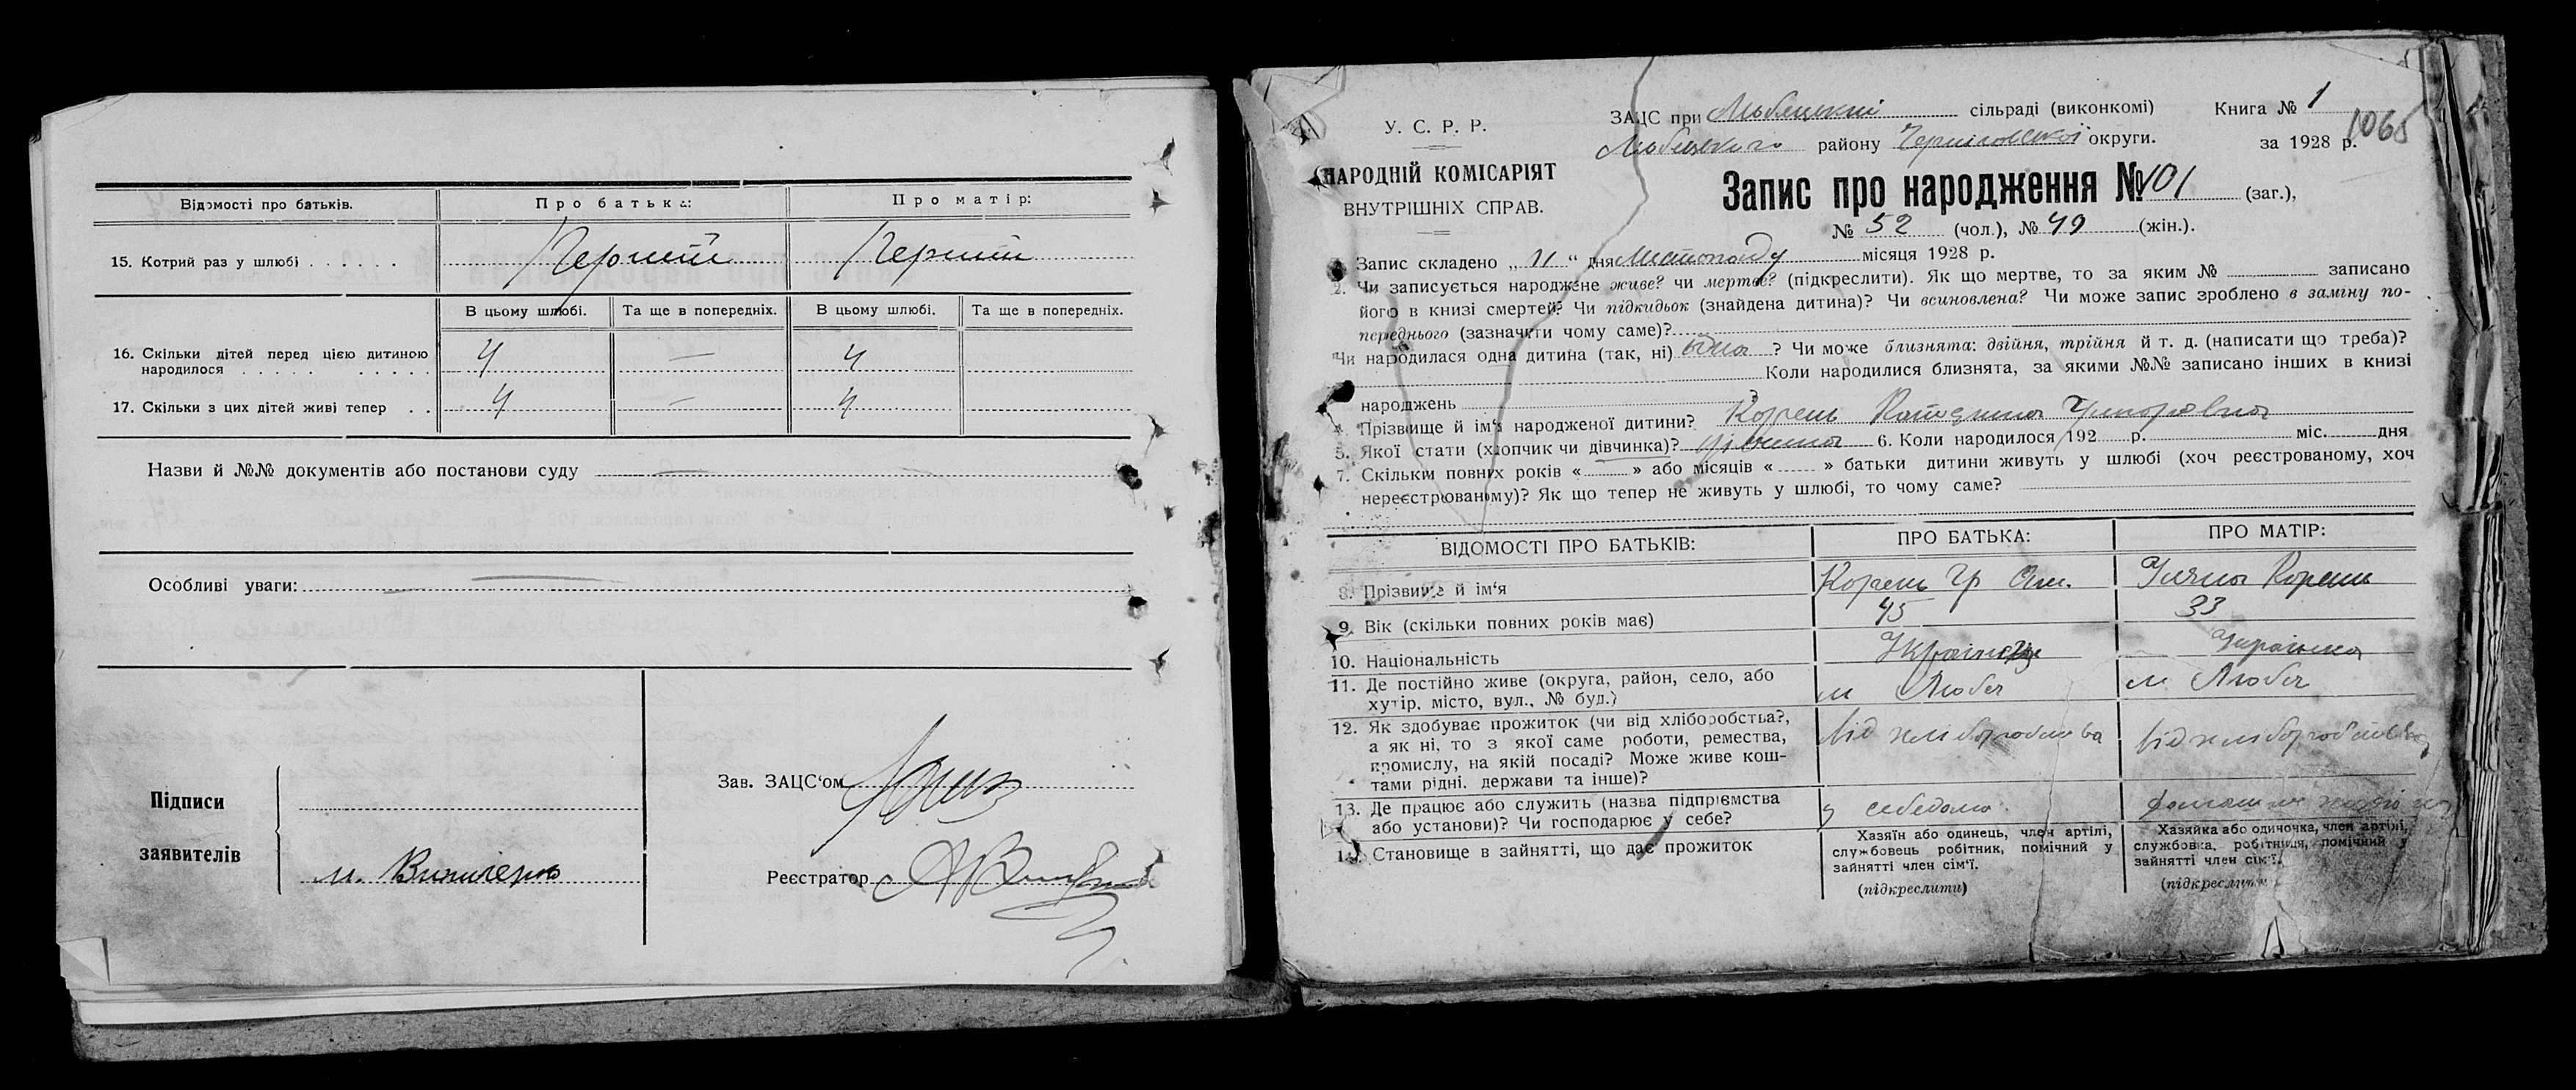 Відомості про батьків.
Про батька:
Про матір:
15. Котрий раз у шлюбі . . . . . .
Перший
Перший
В цьому шлюбі.
Та ще в попередніх.
В цьому шлюбі.
Та ще в попередніх.
16. Скільки дітей перед цією дитиною
народилося . . . . . . . . . .
4 — 4
17. Скільки з цих дітей живі тепер . .
4 — 4
Назви й №№ документів або постанови суду —
Особливі уваги: —
Підписи
заявителів
Зав. ЗАЦС‘ом
Реєстратор
У. С. Р. Р.
НАРОДНІЙ КОМІСАРІЯТ
ВНУТРІШНІХ СПРАВ.
ЗАЦС при Любецкій сільраді (виконкомі)
Книга № 1
1065
Любецкого району Черніговської округи.
за 1928 р.
Запис про народження № 101 (заг.),
№ 52 (чол.), № 49 (жін.).
Запис складено „ 11 “ дня Листопаду місяця 1928 р.
2. Чи записується народжене живе? чи мертве? (підкреслити). Як що мертве, то за яким № записано
його в книзі смертей? Чи підкидьок (знайдена дитина)? Чи всиновлена? Чи може запис зроблено в заміну по-
переднього (зазначити чому саме)?
Чи народилася одна дитина (так, ні) одна ? Чи може близнята: двійня, трійня й т. д. (написати що треба)?
Коли народилися близнята, за якими №№ записано інших в книзі
народжень
4. Прізвище й ім‘я народженої дитини? Корень Катерина Григоровна
5. Якої стати (хлопчик чи дівчинка)? дівчина 6. Коли народилося 192 р. міс. дня
7. Скільки повних років « » або місяців « » батьки дитини живуть у шлюбі (хоч реєстрованому, хоч
нереєстрованому)? Як що тепер не живуть у шлюбі, то чому саме?
ВІДОМОСТІ ПРО БАТЬКІВ:
ПРО БАТЬКА:
ПРО МАТІР:
8. Прізвище й ім‘я
Корень Гр
Уляна Корень
9. Вік (скільки повних років має)
45
33
10. Національність
Українец
Українка
11. Де постійно живе (округа, район, село, або
хутір, місто, вул., № буд.)
м Любеч
м. Любеч
12. Як здобуває прожиток (чи від хліборобства?,
а як ні, то з якої саме роботи, ремества,
промислу, на якій посаді? Може живе кош-
тами рідні, держави та інше)?
від хліборобства
від хліборобства
13. Де працює або служить (назва підприємства
або установи)? Чи господарює у себе?
у себе дома.
14. Становище в зайнятті, що дає прожиток
Хазяїн або одинець, член артілі,
службовець робітник, помічний у
зайнятті член сім‘ї.
(підкреслити)
Хазяйка або одиночка, член артілі,
службовка, робітниця, помічний у
зайнятті член сім‘ї.
(підкреслити)